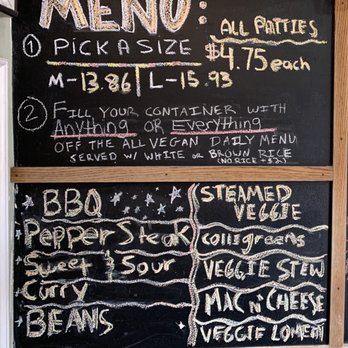 MENU:
ALL PATTIES
$4.75 each
① PICK A SIZE
M-13.86 | L-15.93
② FILL YOUR CONTAINER WITH
Anything OR Everything
OFF THE ALL VEGAN DAILY MENU
SERVED W/ WHITE OR BROWN RICE
(NO RICE +$2)
BBQ
Pepper Steak
Sweet & Sour
Curry
BEANS
STEAMED
VEGGIE
COLLS greens
VEGGIE STEW
MAC N' CHEESE
VEGGIE LOMEIN